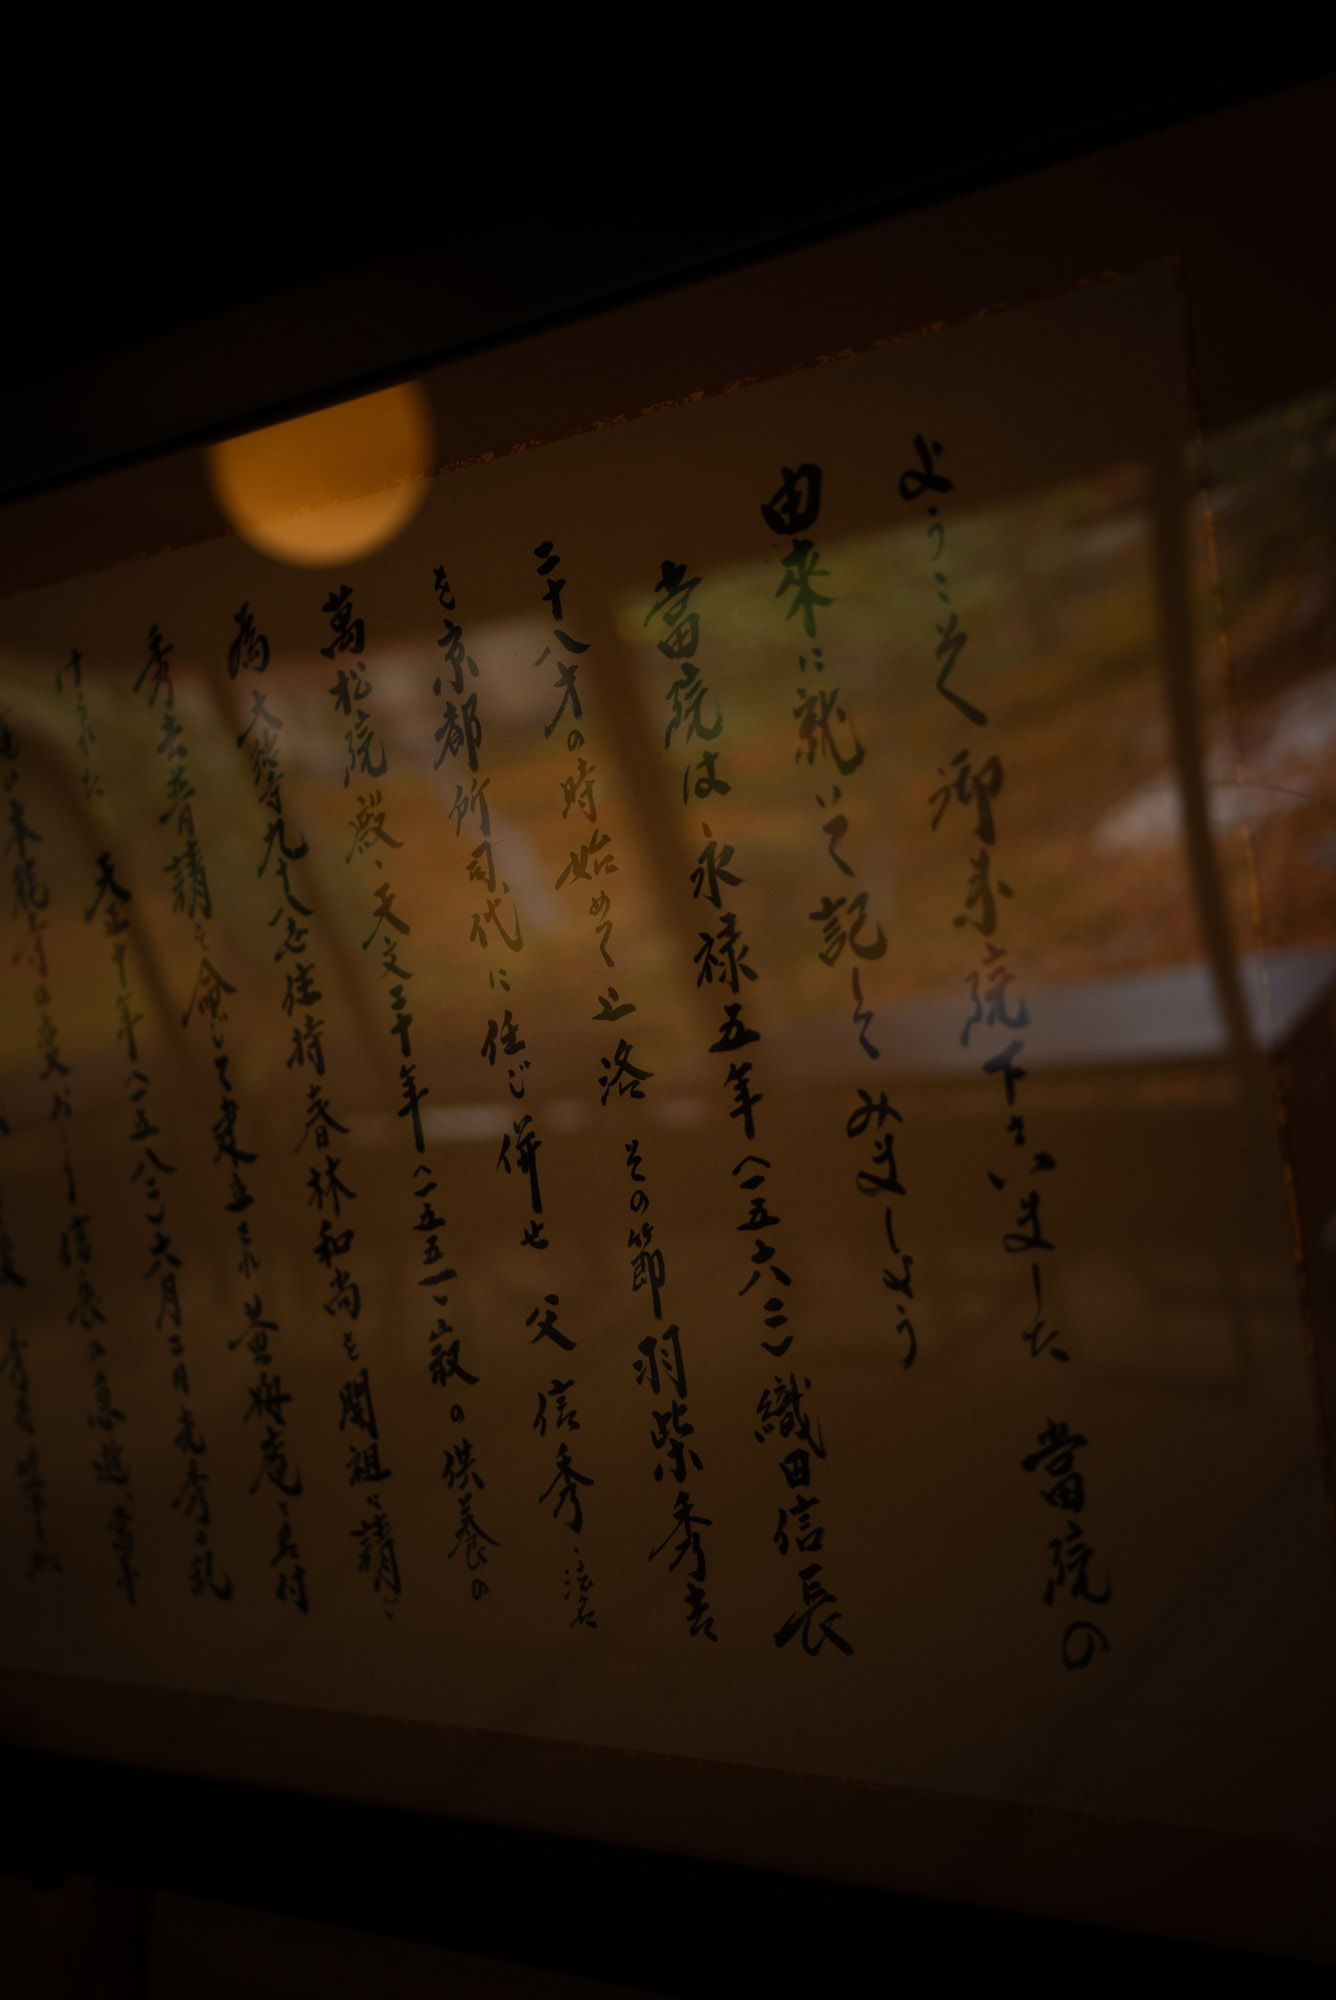 ようこそ 御来院下さいました 當院の
由來に就いて記してみましょう
當院は永禄五年(一五六二)織田信長
二十八才の時始めて上洛 その節羽柴秀吉
を京都所司代に任じ併せ 父 信秀 法名
萬松院殿、天文二十年(一五五一)寂の供養の
為 大徳寺九十八世住持春林和尚を開祖に請じ
秀吉普請を命じて建立され 黄梅庵と名付
けられた 天正十年(一五八二)六月二日光秀の乱
本能寺の変おこり信長の急逝、當年